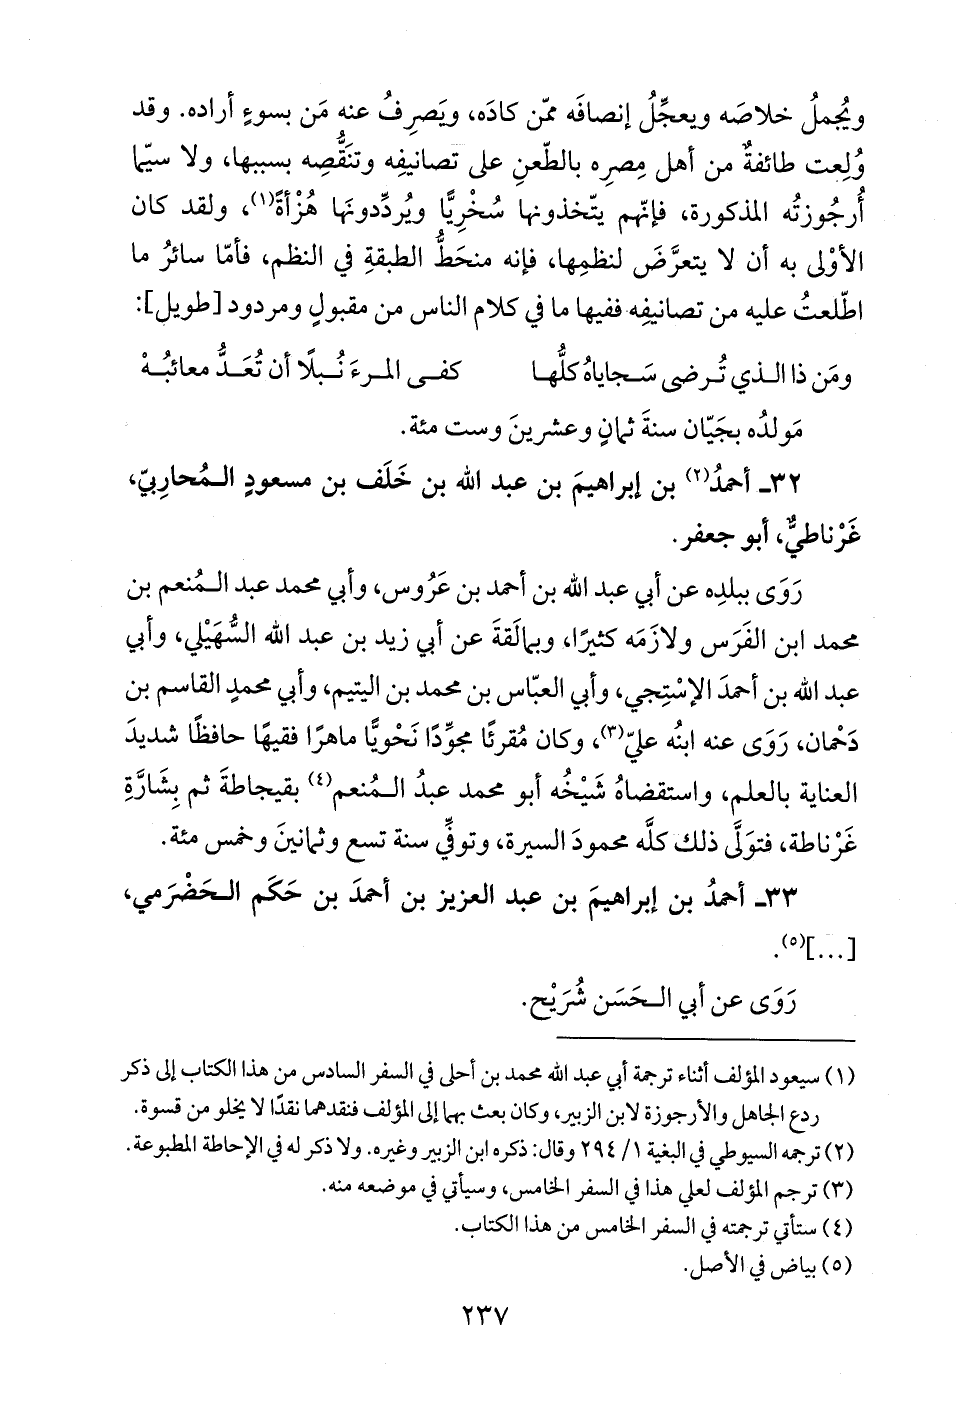 ويُجملُ خلاصَه ويعجِّلُ إنصافَه ممّن كادَه، ويَصرِفُ عنه مَن بسوءٍ أراده. وقد
وُلِعت طائفةٌ من أهل مِصرِه بالطّعنِ على تصانيفِه وتنَقُّصِه بسببها، ولا سيّما
أُرجُوزتُه المذكورة، فإنّهم يتّخذونها سُخْريًّا ويُردِّدونَها هُزْأةً(١)، ولقد كان
الأوْلى به أن لا يتعرَّضَ لنظمِها، فإنه منحَطُّ الطبقةِ في النظم، فأمّا سائرُ ما
اطّلعتُ عليه من تصانيفِه ففيها ما في كلام الناس من مقبولٍ ومردود [طويل]:
ومَن ذا الـذي تُـرضى سَـجاياهُ كلُّهـا كفـى المـرءَ نُـبلًا أن تُعَـدَّ معائبُـهْ
مَولدُه بجَيّان سنةَ ثمانٍ وعشرينَ وست مئة.
٣٢ـ أحمدُ(٢) بن إبراهيمَ بن عبد الله بن خَلَف بن مسعودٍ الـمُحاربيّ،
غَرْناطيٌّ، أبو جعفر.
رَوَى ببلدِه عن أبي عبد الله بن أحمد بن عَرُوس، وأبي محمد عبد الـمُنعم بن
محمد ابن الفَرَس ولازَمَه كثيرًا، وبمالَقةَ عن أبي زيد بن عبد الله السُّهَيْلي، وأبي
عبد الله بن أحمدَ الإسْتِجي، وأبي العبّاس بن محمد بن اليتيم، وأبي محمدٍ القاسم بن
دَحْمان، رَوَى عنه ابنُه عليّ(٣)، وكان مُقرئًا مجوِّدًا نَحْويًّا ماهرًا فقيهًا حافظًا شديدَ
العناية بالعلم، واستقضاهُ شَيْخُه أبو محمد عبدُ الـمُنعم(٤) بقيجاطةَ ثم بِشَارَّةِ
غَرْناطة، فتوَلَّى ذلك كلَّه محمودَ السيرة، وتوفِّي سنة تسع وثمانينَ وخمس مئة.
٣٣ـ أحمدُ بن إبراهيمَ بن عبد العزيز بن أحمدَ بن حَكَم الـحَضْرَمي،
[...](٥).
رَوَى عن أبي الـحَسَن شُرَيْح.
(١) سيعود المؤلف أثناء ترجمة أبي عبد الله محمد بن أحلى في السفر السادس من هذا الكتاب إلى ذكر
ردع الجاهل والأرجوزة لابن الزبير، وكان بعث بهما إلى المؤلف فنقدهما نقدًا لا يخلو من قسوة.
(٢) ترجمه السيوطي في البغية ١/ ٢٩٤ وقال: ذكره ابن الزبير وغيره. ولا ذكر له في الإحاطة المطبوعة.
(٣) ترجم المؤلف لعلي هذا في السفر الخامس، وسيأتي في موضعه منه.
(٤) ستأتي ترجمته في السفر الخامس من هذا الكتاب.
(٥) بياض في الأصل.
٢٣٧